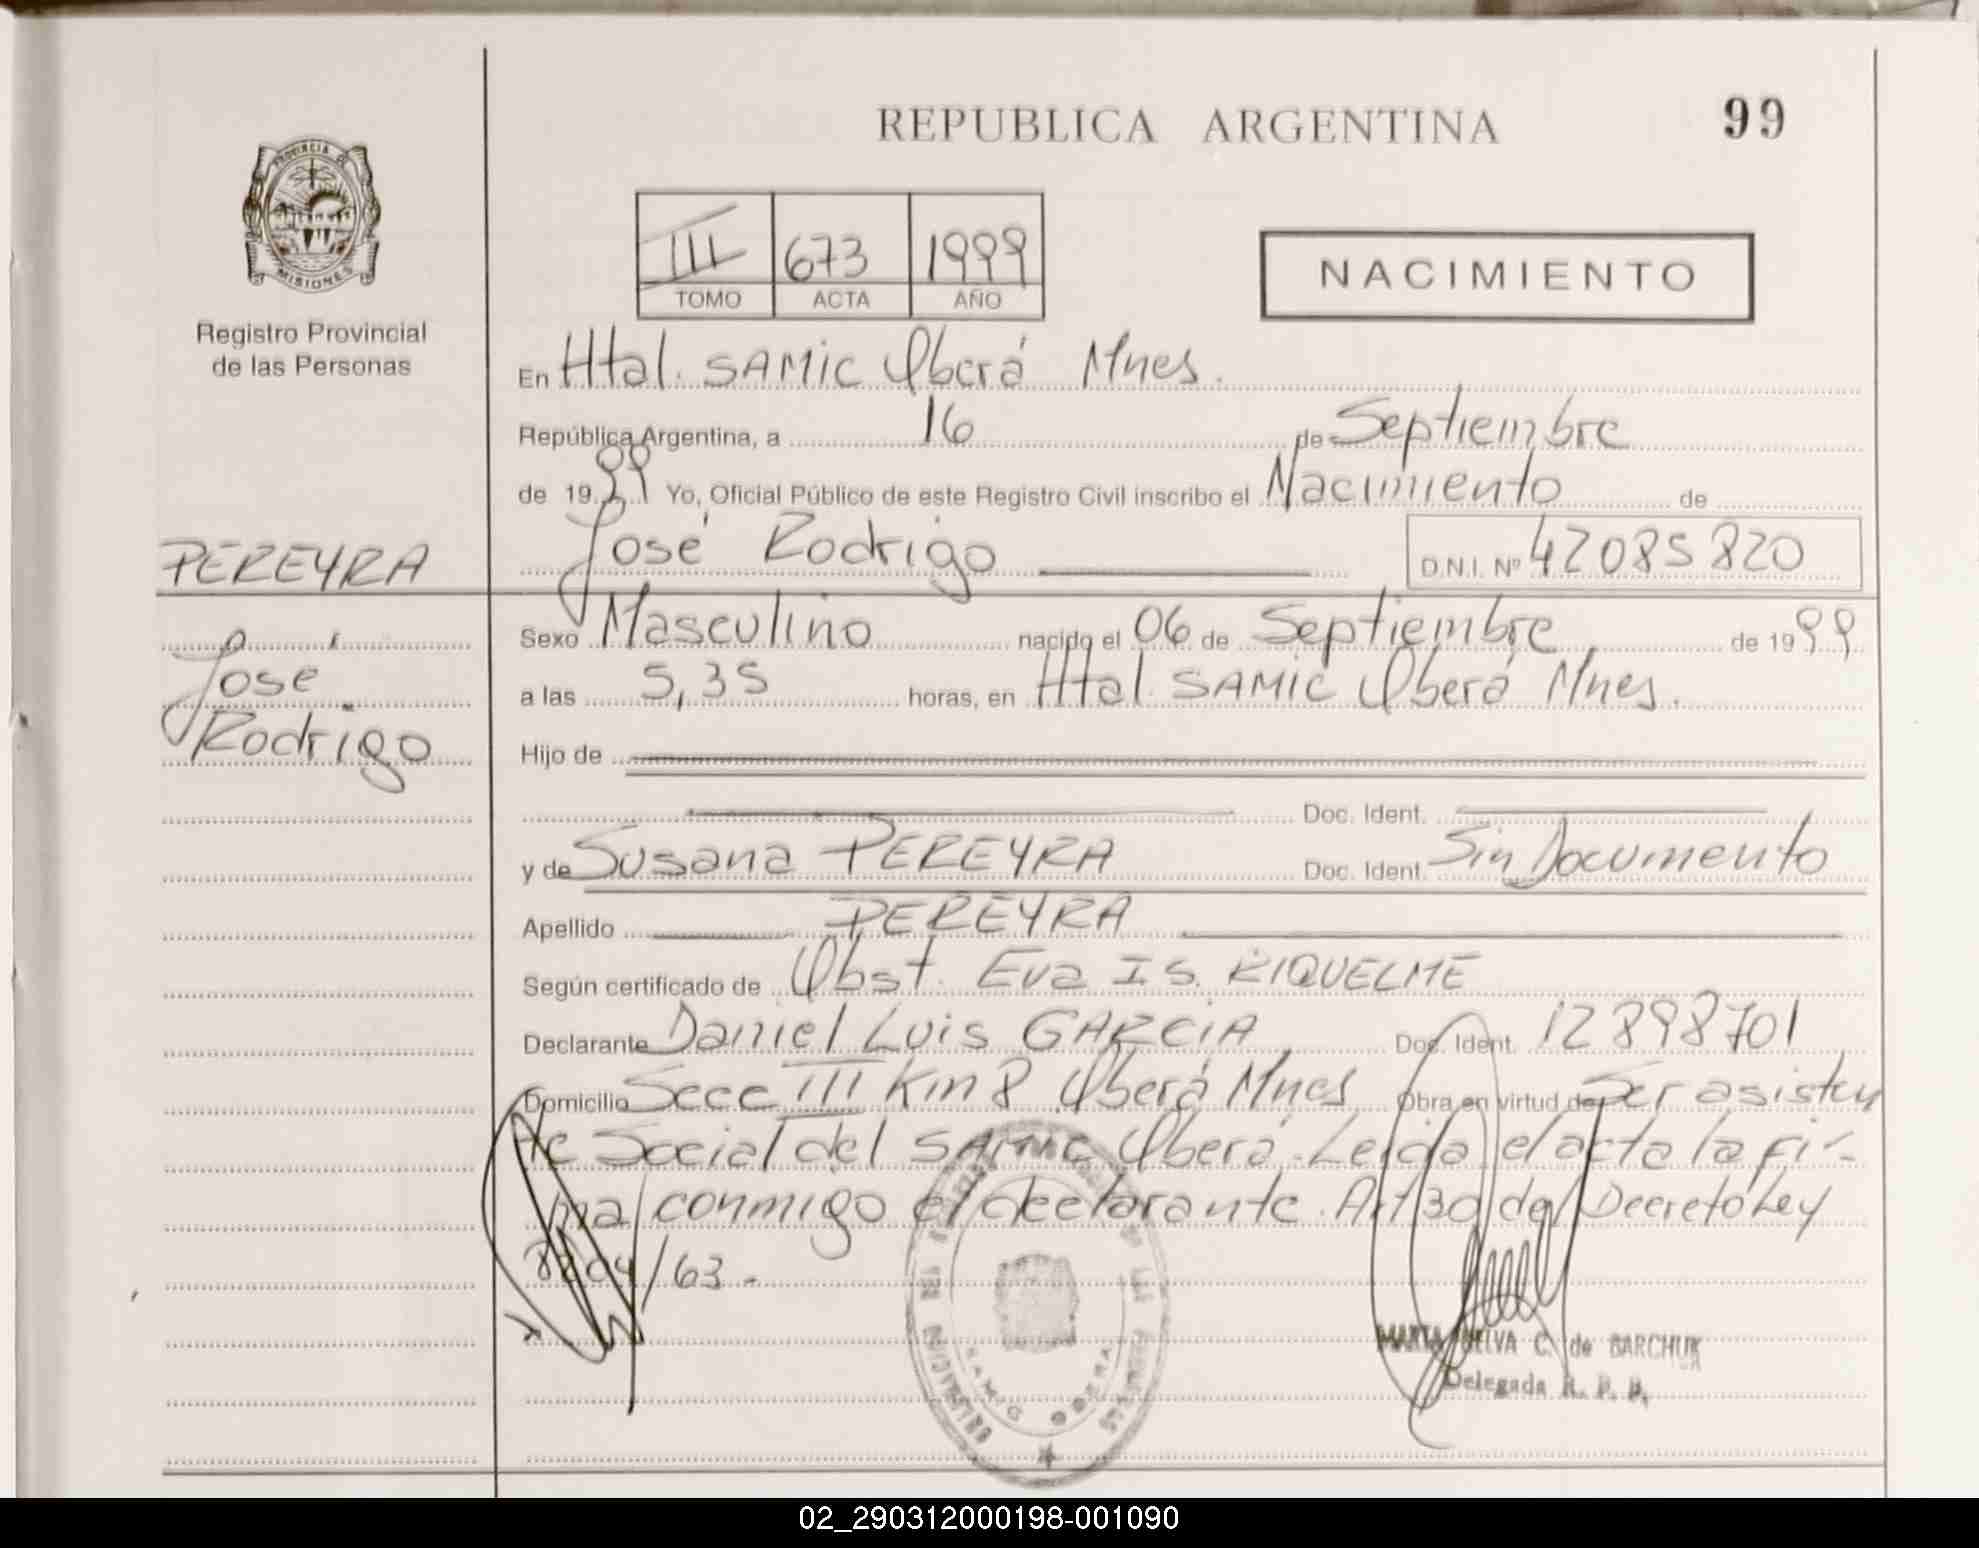 REPUBLICA ARGENTINA
99
PROVINCIA DE MISIONES
Registro Provincial
de las Personas
III 673 1999
TOMO ACTA AÑO
NACIMIENTO
En Htal. SAMIC Oberá Mnes.
República Argentina, a 16 de Septiembre
de 1999 Yo, Oficial Público de este Registro Civil inscribo el Nacimiento de
José Rodrigo D.N.I. Nº 42085820
PEREYRA
José
Rodrigo
Sexo Masculino nacido el 06 de Septiembre de 1999
a las 5,35 horas, en Htal. SAMIC Oberá Mnes.
Hijo de
Doc. Ident.
y de Susana PEREYRA Doc. Ident. Sin Documento
Apellido PEREYRA
Según certificado de Obst. Eva IS. RIQUELME
Declarante Daniel Luis GARCIA Doc. Ident. 12898701
Domicilio Secc III Km 8 Oberá Mnes Obra en virtud de Ser asisten
te Social del SAMIC Oberá. Leida el acta la fir-
ma conmigo el declarante. Art 30 del Decreto Ley
8204/63.-
MARTA SELVA C. de BARCHUK
Delegada R. P. P.
02_290312000198-001090